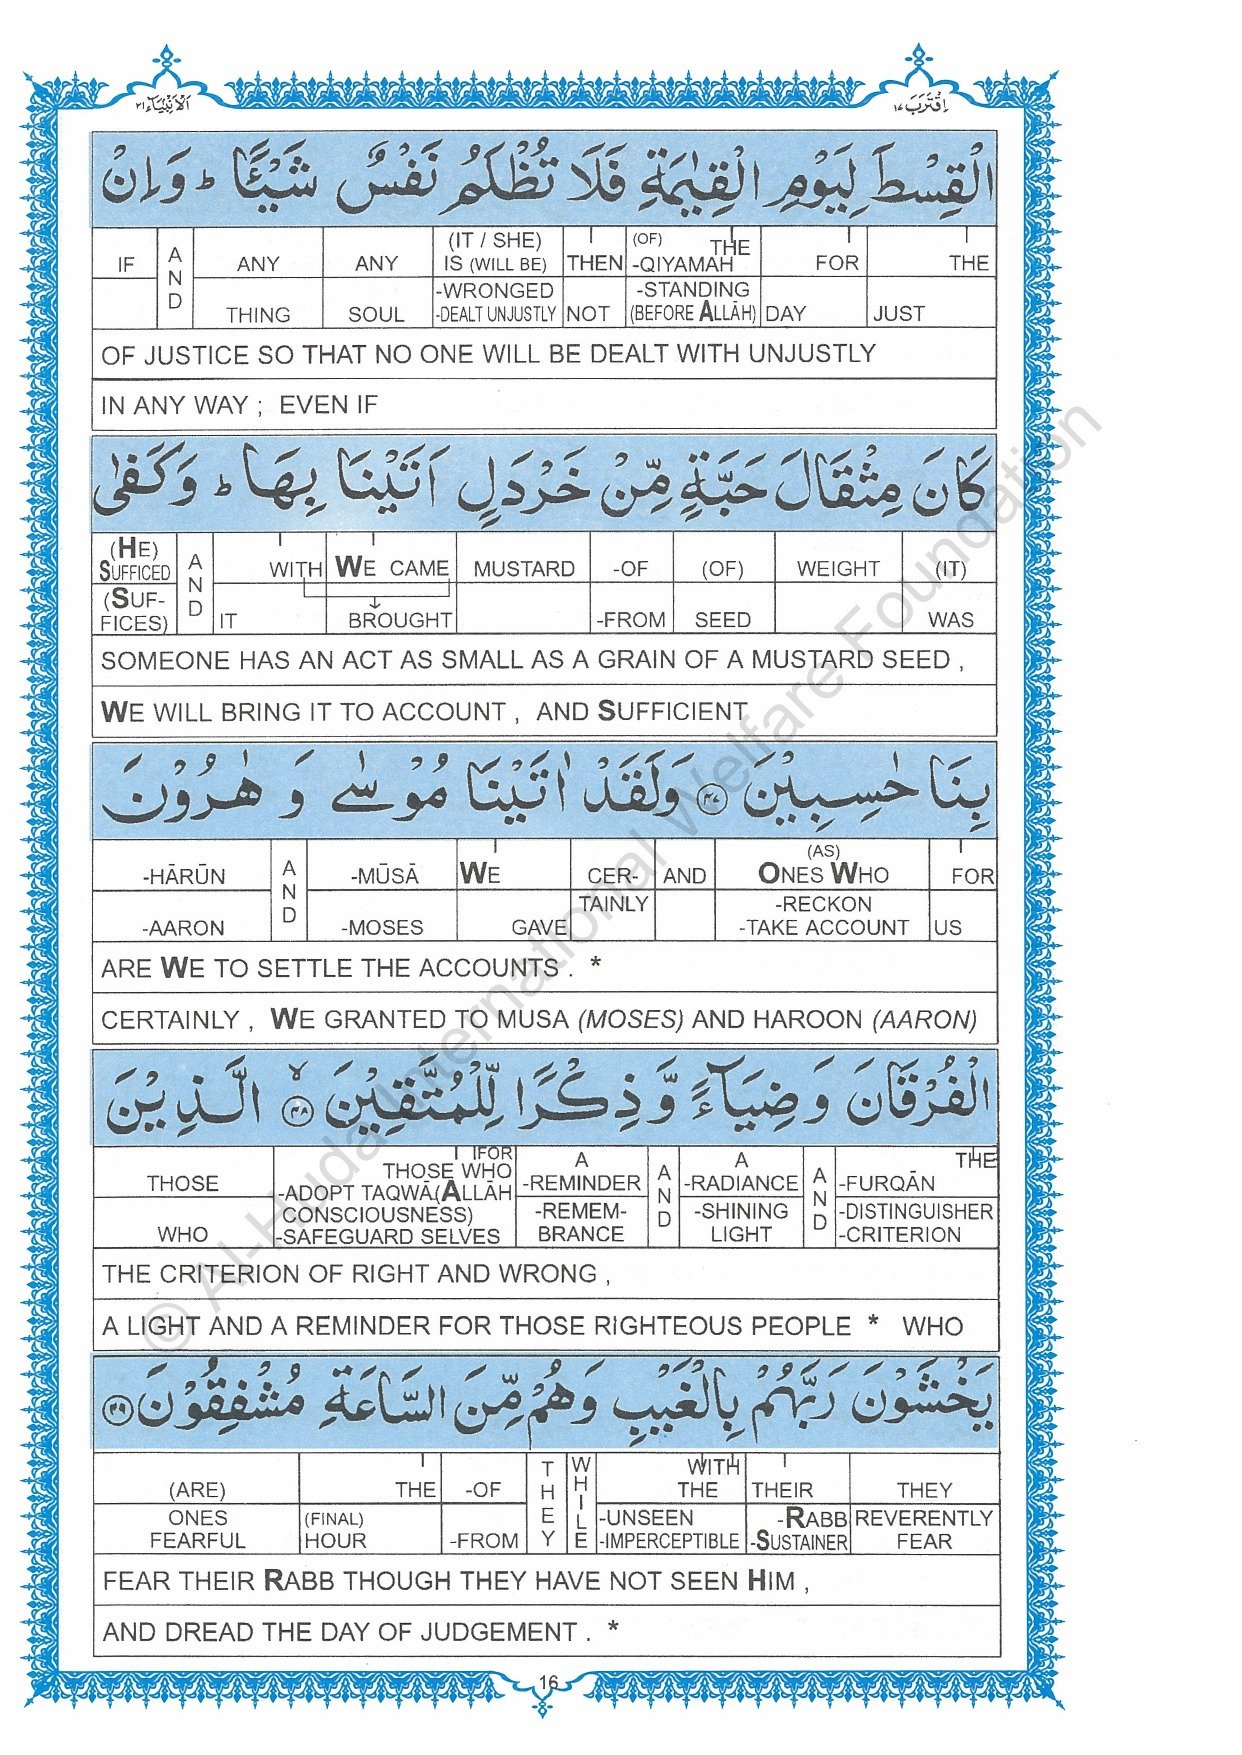 اَلْاَنْۢبِيَآء ٢١
اِقْتَرَبَ ١٧
الْقِسْطَ لِيَوْمِ الْقِيٰمَةِ فَلَا تُظْلَمُ نَفْسٌ شَيْـًٔا ؕ وَاِنْ
IF AND ANY ANY (IT / SHE) IS (WILL BE) THEN (OF) THE -QIYAMAH FOR THE
THING SOUL -WRONGED -DEALT UNJUSTLY NOT -STANDING (BEFORE ALLĀH) DAY JUST
OF JUSTICE SO THAT NO ONE WILL BE DEALT WITH UNJUSTLY
IN ANY WAY ; EVEN IF
كَانَ مِثْقَالَ حَبَّةٍ مِّنْ خَرْدَلٍ اَتَيْنَا بِهَا ؕ وَكَفٰى
(HE) SUFFICED AND WITH WE CAME MUSTARD -OF (OF) WEIGHT (IT)
(SUF-FICES) IT BROUGHT -FROM SEED WAS
SOMEONE HAS AN ACT AS SMALL AS A GRAIN OF A MUSTARD SEED ,
WE WILL BRING IT TO ACCOUNT , AND SUFFICIENT
بِنَا حٰسِبِيْنَ ﴿۴۷﴾ وَلَقَدْ اٰتَيْنَا مُوْسٰى وَ هٰرُوْنَ
-HĀRŪN AND -MŪSĀ WE CER- AND (AS) ONES WHO FOR
-AARON -MOSES GAVE TAINLY -RECKON -TAKE ACCOUNT US
ARE WE TO SETTLE THE ACCOUNTS . *
CERTAINLY , WE GRANTED TO MUSA (MOSES) AND HAROON (AARON)
الْفُرْقَانَ وَضِيَآءً وَّذِكْرًا لِّلْمُتَّقِيْنَ ﴿۴۸﴾ۙ الَّذِيْنَ
THOSE FOR THOSE WHO A -REMINDER AND A -RADIANCE AND THE -FURQĀN
WHO -ADOPT TAQWĀ(ALLĀH CONSCIOUSNESS) -SAFEGUARD SELVES -REMEM-BRANCE -SHINING LIGHT -DISTINGUISHER -CRITERION
THE CRITERION OF RIGHT AND WRONG ,
A LIGHT AND A REMINDER FOR THOSE RIGHTEOUS PEOPLE * WHO
يَخْشَوْنَ رَبَّهُمْ بِالْغَيْبِ وَهُمْ مِّنَ السَّاعَةِ مُشْفِقُوْنَ ﴿۴۹﴾
(ARE) THE -OF THEY WHILE WITH THE THEIR THEY
ONES FEARFUL (FINAL) HOUR -FROM -UNSEEN -IMPERCEPTIBLE -RABB -SUSTAINER REVERENTLY FEAR
FEAR THEIR RABB THOUGH THEY HAVE NOT SEEN HIM ,
AND DREAD THE DAY OF JUDGEMENT . *
16
© Al-Huda International Welfare Foundation